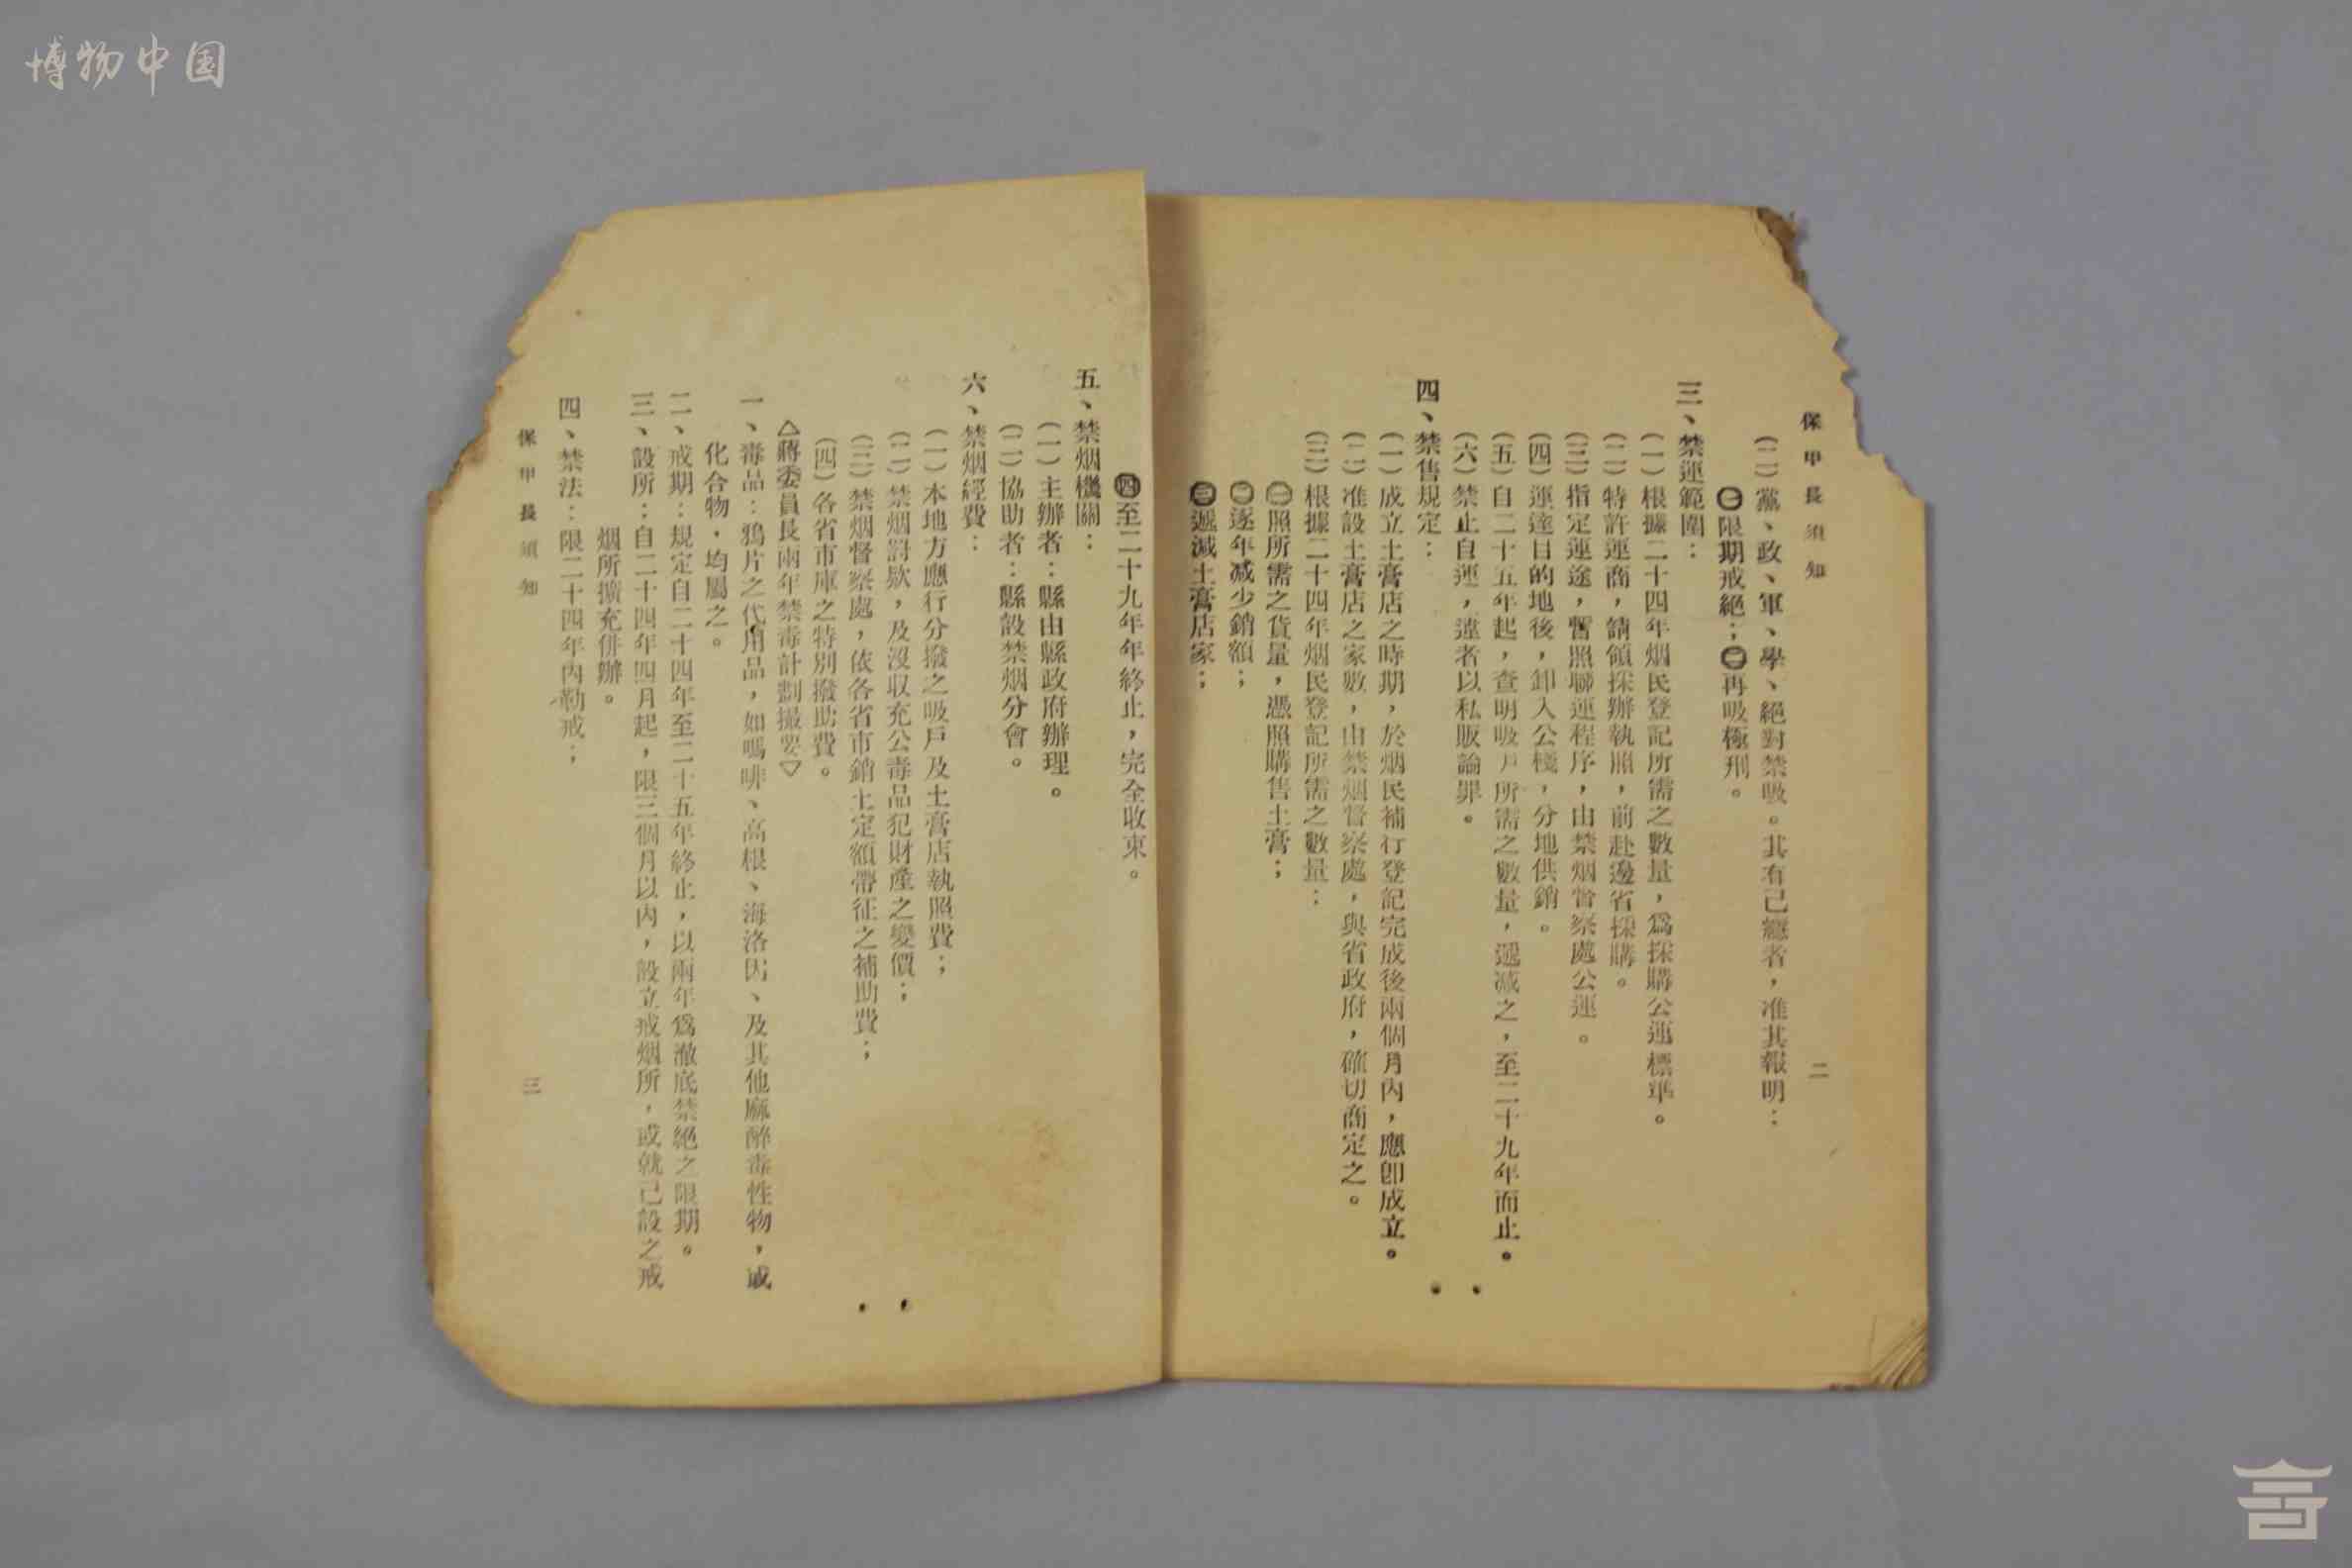 博物中国
保甲長須知
二
(二)黨、政、軍、學、絕對禁吸。其有已癮者,准其報明:
㊀限期戒絕;㊁再吸極刑。
三、禁運範圍:
(一)根據二十四年烟民登記所需之數量,爲採購公運標準。
(二)特許運商,請領採辦執照,前赴邊省採購。
(三)指定運途,暫照聯運程序,由禁烟督察處公運。
(四)運達目的地後,卸入公棧,分地供銷。
(五)自二十五年起,查明吸戶所需之數量,遞減之,至二十九年而止。
(六)禁止自運,違者以私販論罪。
四、禁售規定:
(一)成立土膏店之時期,於烟民補行登記完成後兩個月內,應卽成立。
(二)准設土膏店之家數,由禁烟督察處,與省政府,確切商定之。
(三)根據二十四年烟民登記所需之數量:
㊀照所需之貨量,憑照購售土膏;
㊁逐年減少銷額;
㊂遞減土膏店家;
㊃至二十九年年終止,完全收束。
五、禁烟機關:
(一)主辦者:縣由縣政府辦理。
(二)協助者:縣設禁烟分會。
六、禁烟經費:
(一)本地方應行分撥之吸戶及土膏店執照費;
(二)禁烟罰欵,及沒収充公毒品犯財產之變價;
(三)禁烟督察處,依各省市銷土定額帶征之補助費;
(四)各省市庫之特別撥助費。
△蔣委員長兩年禁毒計劃撮要▽
一、毒品:鴉片之代用品,如嗎啡、高根、海洛因、及其他麻醉毒性物,或
化合物,均屬之。
二、戒期:規定自二十四年至二十五年終止,以兩年爲澈底禁絕之限期。
三、設所:自二十四年四月起,限三個月以內,設立戒烟所,或就已設之戒
烟所擴充併辦。
四、禁法:限二十四年內勒戒;
保甲長須知
三